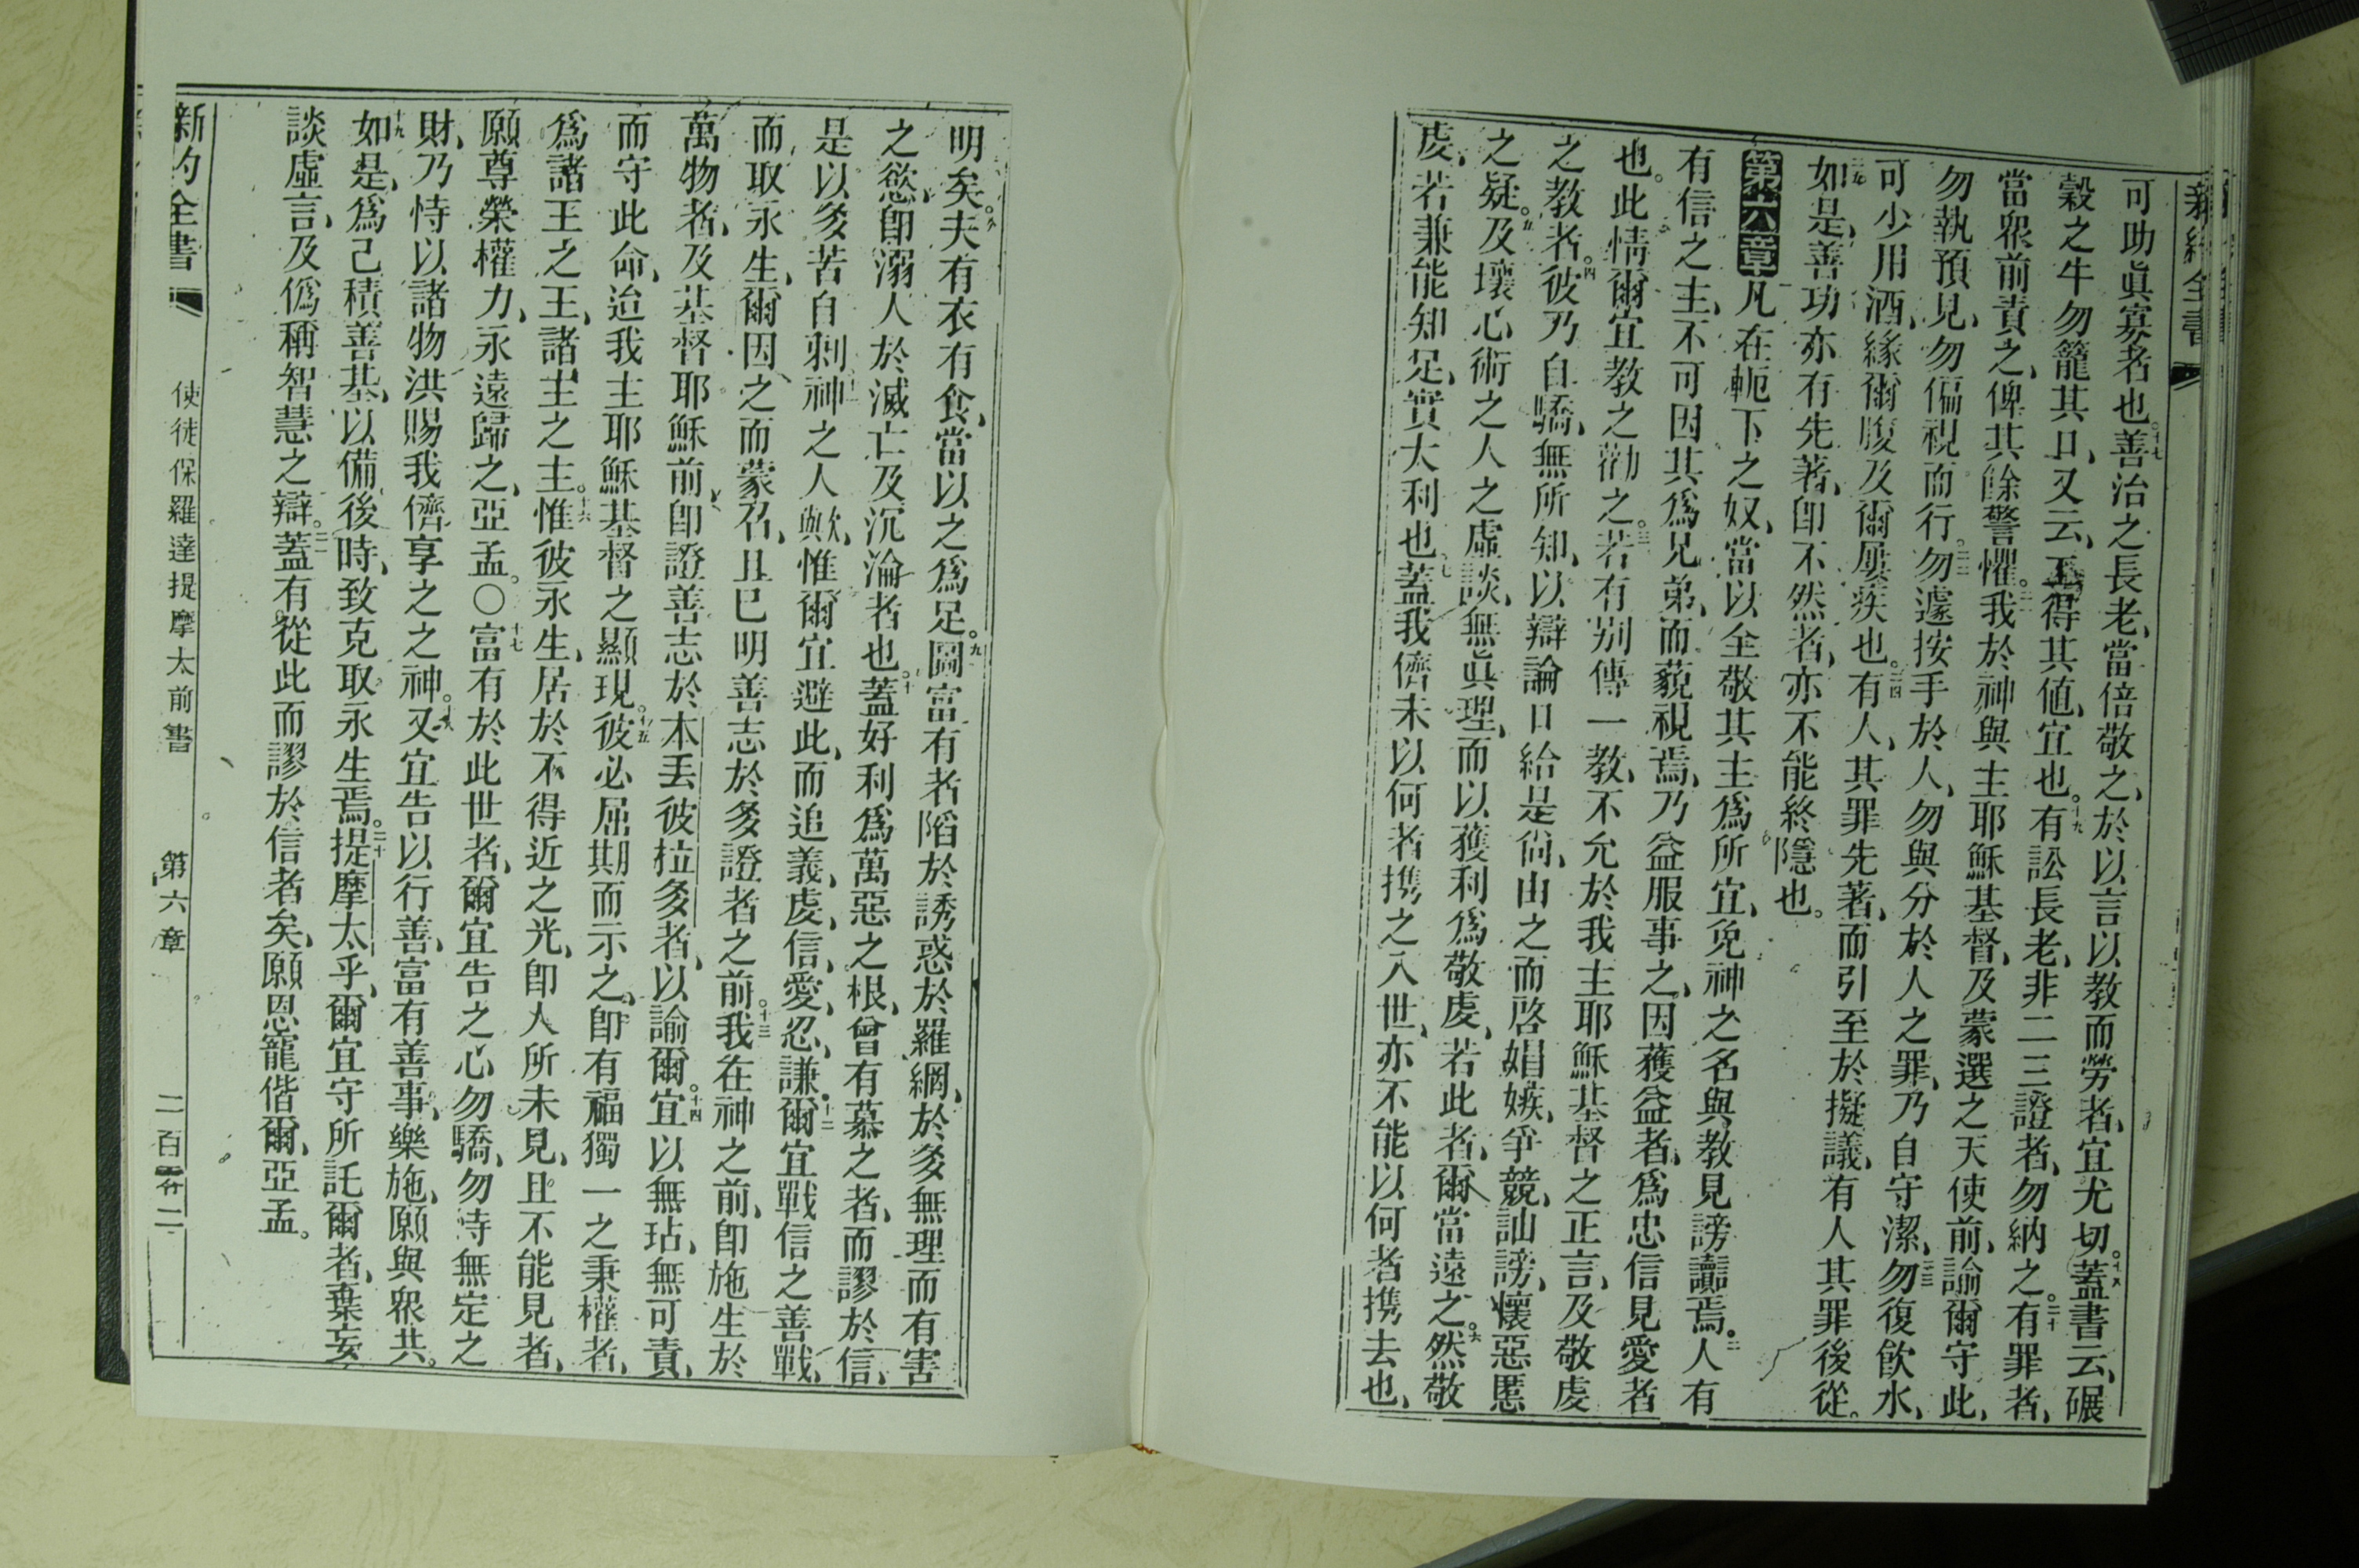 可助眞寡者也。十七善治之長老、當倍敬之、於以言以教而勞者、宜尤切。十八蓋書云、碾
穀之牛勿籠其口、又云、工得其値、宜也。十九有訟長老、非二三證者、勿納之。二十有罪者、
當眾前責之、俾其餘警懼。二一我於神與主耶穌基督、及蒙選之天使前、諭爾守此、
勿執預見、勿偏視而行。二二勿遽按手於人、勿與分於人之罪、乃自守潔、二三勿復飲水、
可少用酒、緣爾腹及爾屢疾也。二四有人、其罪先著、而引至於擬議、有人其罪後從。
二五如是、善功亦有先著、卽不然者、亦不能終隱也。
第六章凡在軛下之奴、當以全敬其主爲所宜、免神之名與教見謗讟焉。二人有
有信之主、不可因其爲兄弟、而藐視焉、乃益服事之、因獲益者、爲忠信見愛者
也。此情爾宜教之勸之。三若有别傳一教、不允於我主耶穌基督之正言、及敬虔
之教者。四彼乃自驕、無所知、以辯論口給是尙、由之而啓娼嫉、爭競、訕謗、懷惡慝
之疑。五及壞心術之人之虛談、無眞理、而以獲利爲敬虔、若此者、爾當遠之。六然敬
虔、若兼能知足、實大利也。七蓋我儕未以何者携之入世、亦不能以何者携去也、
新約全書
明矣。八夫有衣有食、當以之爲足。九圖富有者陷於誘惑於羅網、於多無理而有害
之慾、卽溺人於滅亡及沉淪者也。十蓋好利爲萬惡之根、曾有慕之者、而謬於信、
是以多苦自刺。十一神之人歟、惟爾宜避此、而追義、虔、信、愛、忍、謙。十二爾宜戰信之善戰、
而取永生、爾因之而蒙召、且已明善志於多證者之前。十三我在神之前、卽施生於
萬物者、及基督耶穌前、卽證善志於本丢彼拉多者、以諭爾。十四宜以無玷、無可責、
而守此命、迨我主耶穌基督之顯現。十五彼必屆期而示之、卽有福獨一之秉權者、
爲諸王之王、諸主之主。十六惟彼永生、居於不得近之光、卽人所未見、且不能見者、
願尊榮權力、永遠歸之、亞孟。〇十七富有於此世者、爾宜告之心勿驕、勿恃無定之
財、乃恃以諸物洪賜我儕享之之神。十八又宜告以行善、富有善事、樂施、願與眾共。
十九如是、爲己積善基、以備後時、致克取永生焉。二十提摩太乎、爾宜守所託爾者、棄妄
談虛言、及僞稱智慧之辯。二一蓋有從此而謬於信者矣、願恩寵偕爾、亞孟。
新約全書 使徒保羅達提摩太前書 第六章 二百零二